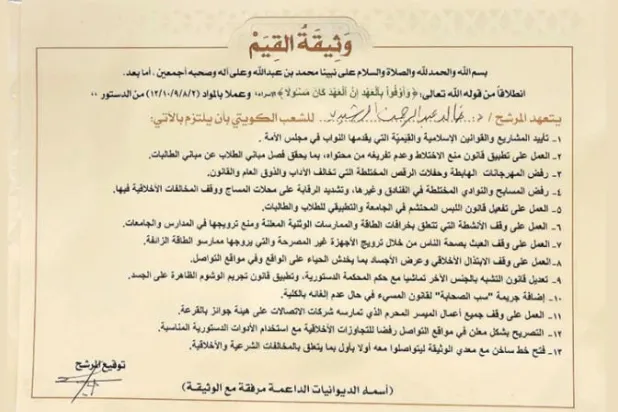 وَثِيقَةُ القِيَمْ
بسم الله والحمدلله والصلاة والسلام على نبينا محمد بن عبدالله وعلى آله وصحبه أجمعين، أما بعد،
انطلاقاً من قوله الله تعالى: ﴿وَأَوْفُوا بِالْعَهْدِ إِنَّ الْعَهْدَ كَانَ مَسْئُولًا﴾ الإسراء، وعملا بالمواد (١٢/١٠/٩/٨/٢) من الدستور ،،
يتعهد المرشح / د. خالد عبدالرحمن للشعب الكويتي بأن يلتزم بالآتي:
١- تأييد المشاريع والقوانين الإسلامية والقيميّة التي يقدمها النواب في مجلس الأمة .
٢- العمل على تطبيق قانون منع الاختلاط وعدم تفريغه من محتواه، بما يحقق فصل مباني الطلاب عن مباني الطالبات.
٣- رفض المهرجانات الهابطة وحفلات الرقص المختلطة التي تخالف الآداب والذوق العام والقانون.
٤- رفض المسابح والنوادي المختلطة في الفنادق وغيرها، وتشديد الرقابة على محلات المساج ووقف المخالفات الأخلاقية فيها.
٥- العمل على تفعيل قانون اللبس المحتشم في الجامعة والتطبيقي للطلاب والطالبات.
٦- العمل على وقف الأنشطة التي تتعلق بخرافات الطاقة والممارسات الوثنية المعلنة ومنع ترويجها في المدارس والجامعات.
٧- العمل على وقف العبث بصحة الناس من خلال ترويج الأجهزة غير المصرحة والتي يروجها ممارسو الطاقة الزائفة.
٨- العمل على وقف الابتذال الأخلاقي وعرض الأجساد بما يخدش الحياء على الواقع وفي مواقع التواصل.
٩- تعديل قانون التشبه بالجنس الآخر تماشيا مع حكم المحكمة الدستورية، وتطبيق قانون تجريم الوشوم الظاهرة على الجسد.
١٠- إضافة جريمة "سب الصحابة" لقانون المسيء في حال عدم إلغائه بالكلية.
١١- العمل على وقف جميع أعمال الميسر المحرم الذي تمارسه شركات الاتصالات على هيئة جوائز بالقرعة.
١٢- التصريح بشكل معلن في مواقع التواصل رفضا للتجاوزات الأخلاقية مع استخدام الأدوات الدستورية المناسبة.
١٣- فتح خط ساخن مع معدي الوثيقة ليتواصلوا معه أولا بأول بما يتعلق بالمخالفات الشرعية والأخلاقية.
توقيع المرشح
(أسماء الديوانيات الداعمة مرفقة مع الوثيقة)